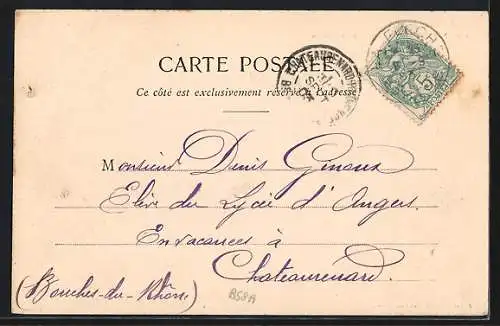 CARTE POSTALE
Ce côté est exclusivement réservé à l'adresse
Monsieur Denis
Elève du Lycée d'Angers
En vacances à
Chateaurenard.
(Bouches-du-Rhône)